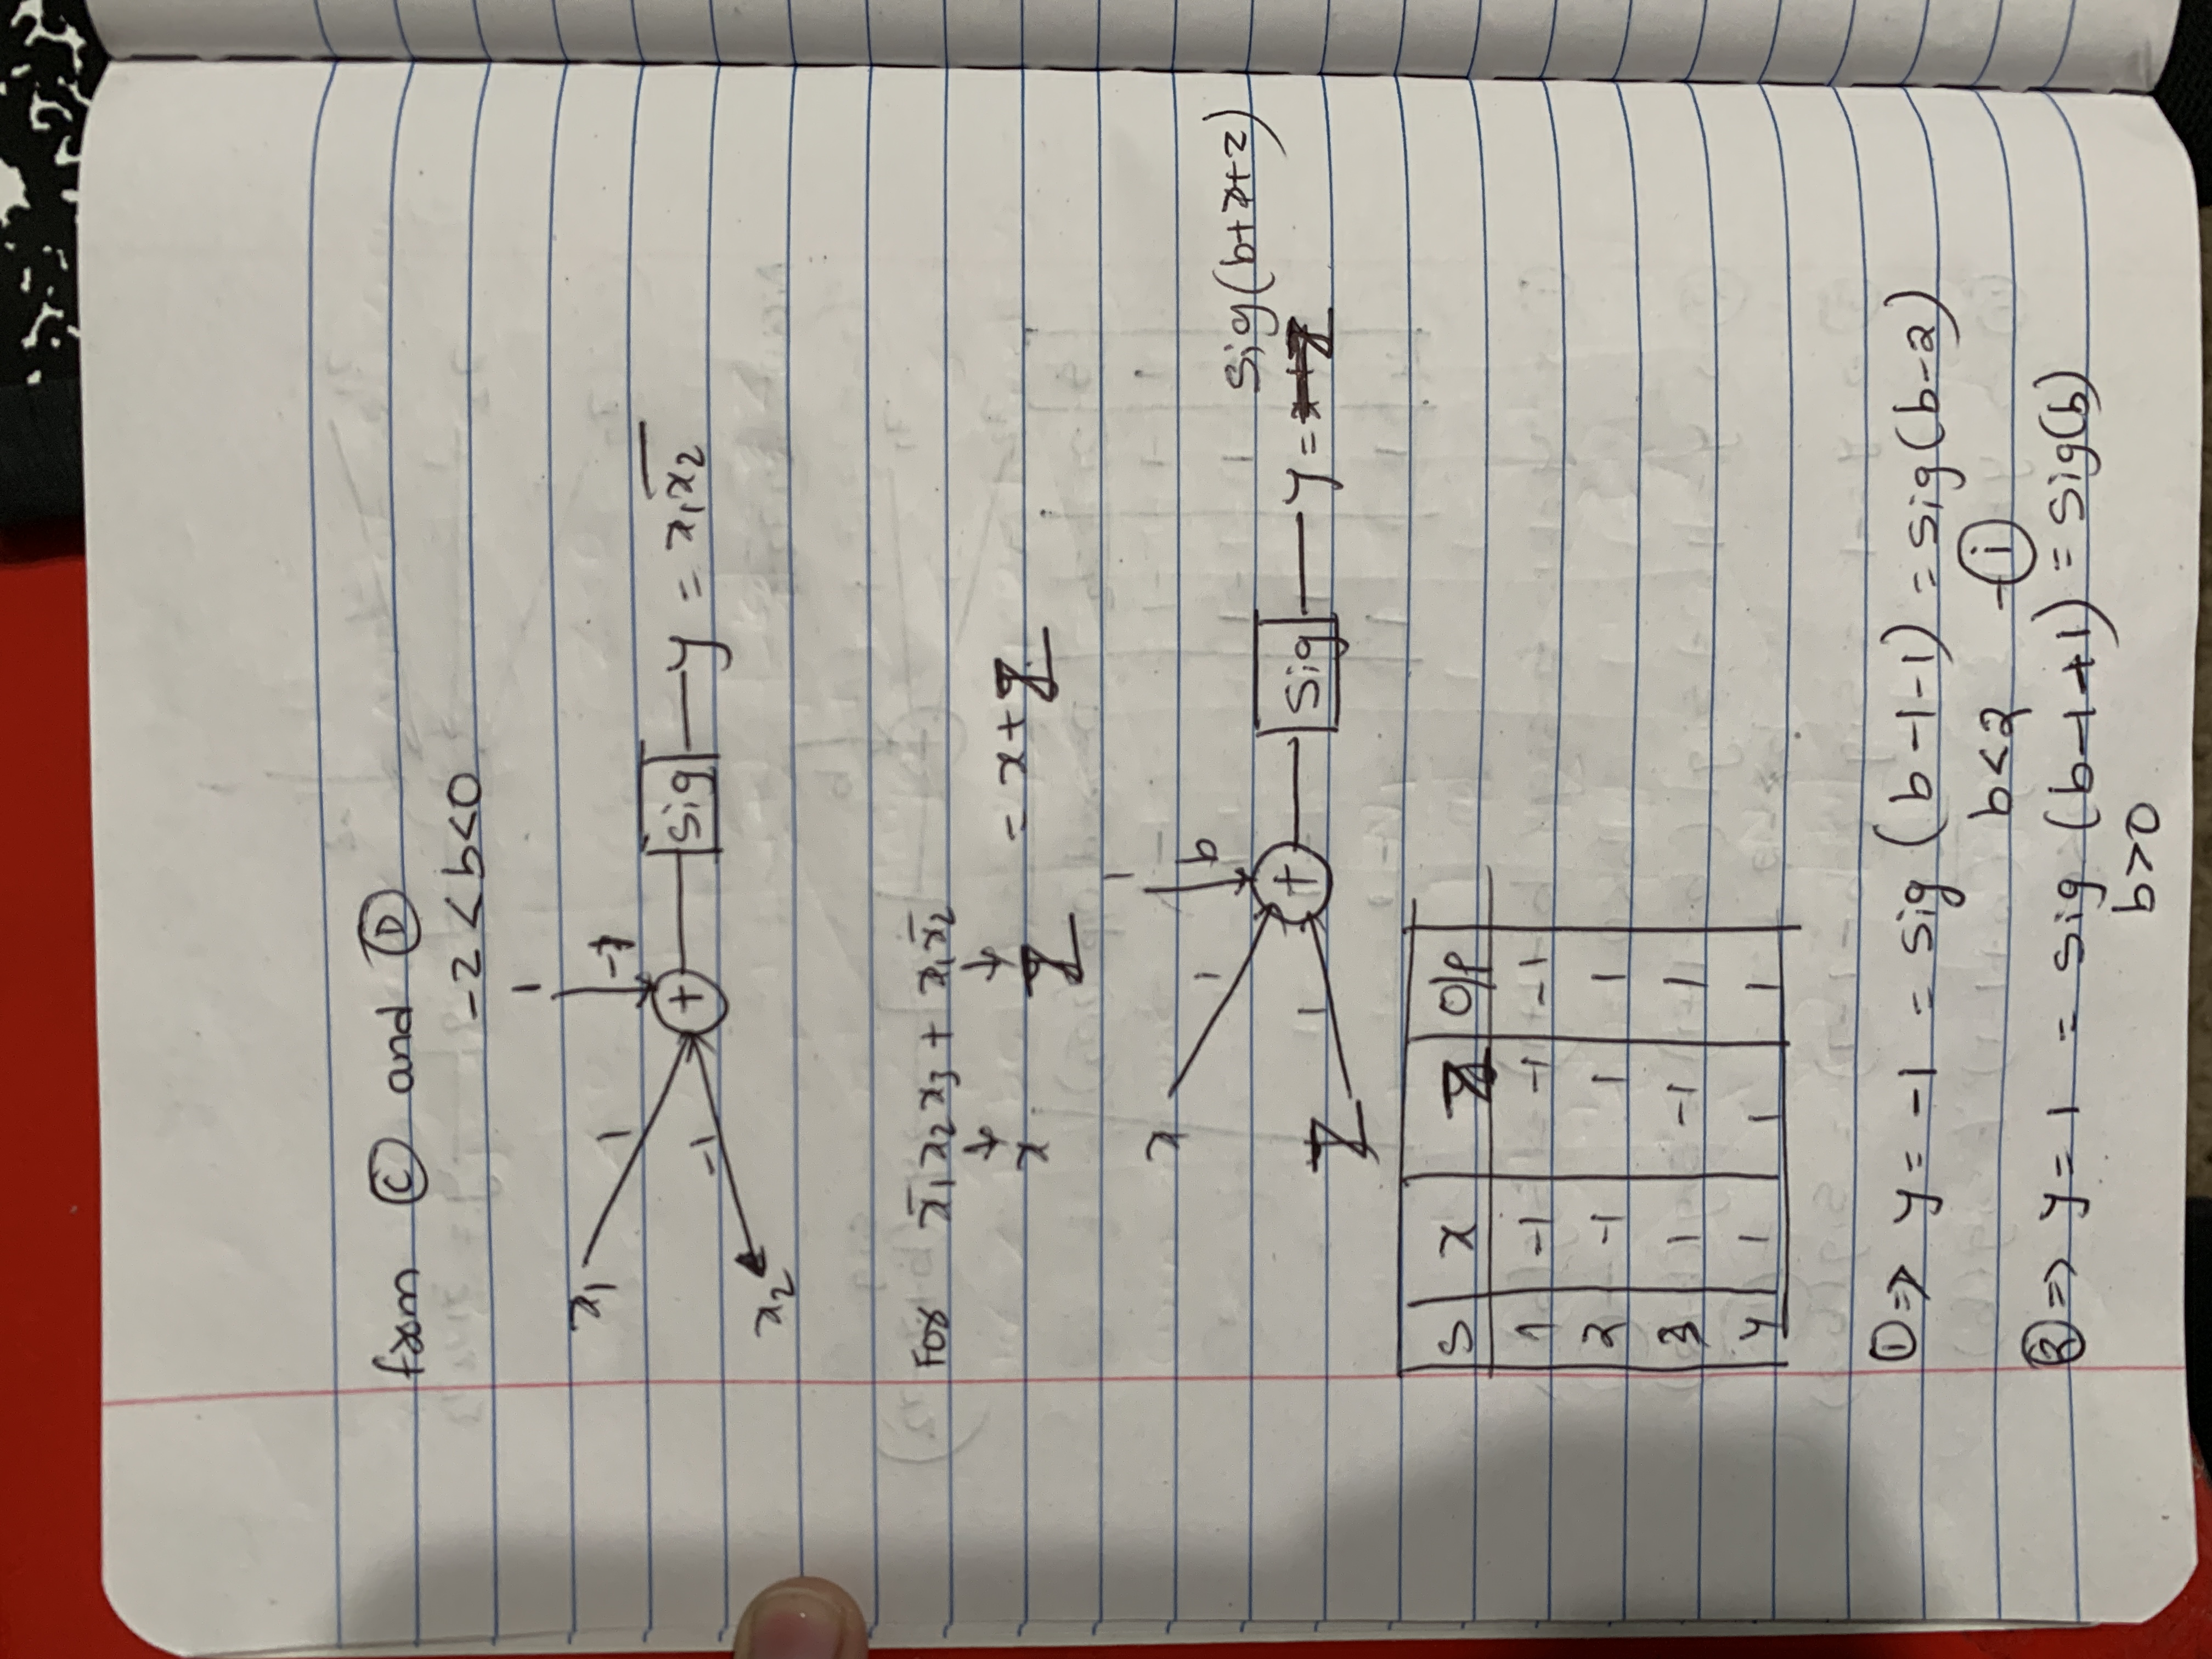 from Ⓒ and Ⓓ
-2 < b < 0
1
x₁ 1 -1
+ sig y = x₁x̅₂
-1
x₂
For x̅₁x₂x₃ + x₁x̅₂
↓ ↓
x Z = x + Z
1
x 1 b
sig(b+x+z)
+ sig y =
Z 1
S x Z O/P
1 -1 -1 -1
2 -1 1 1
3 1 -1 1
4 1 1 1
① ⇒ y = -1 = sig (b-1-1) = sig(b-2)
b<2 -ⓘ
② ⇒ y = 1 = sig (b-1+1) = sig(b)
b>0